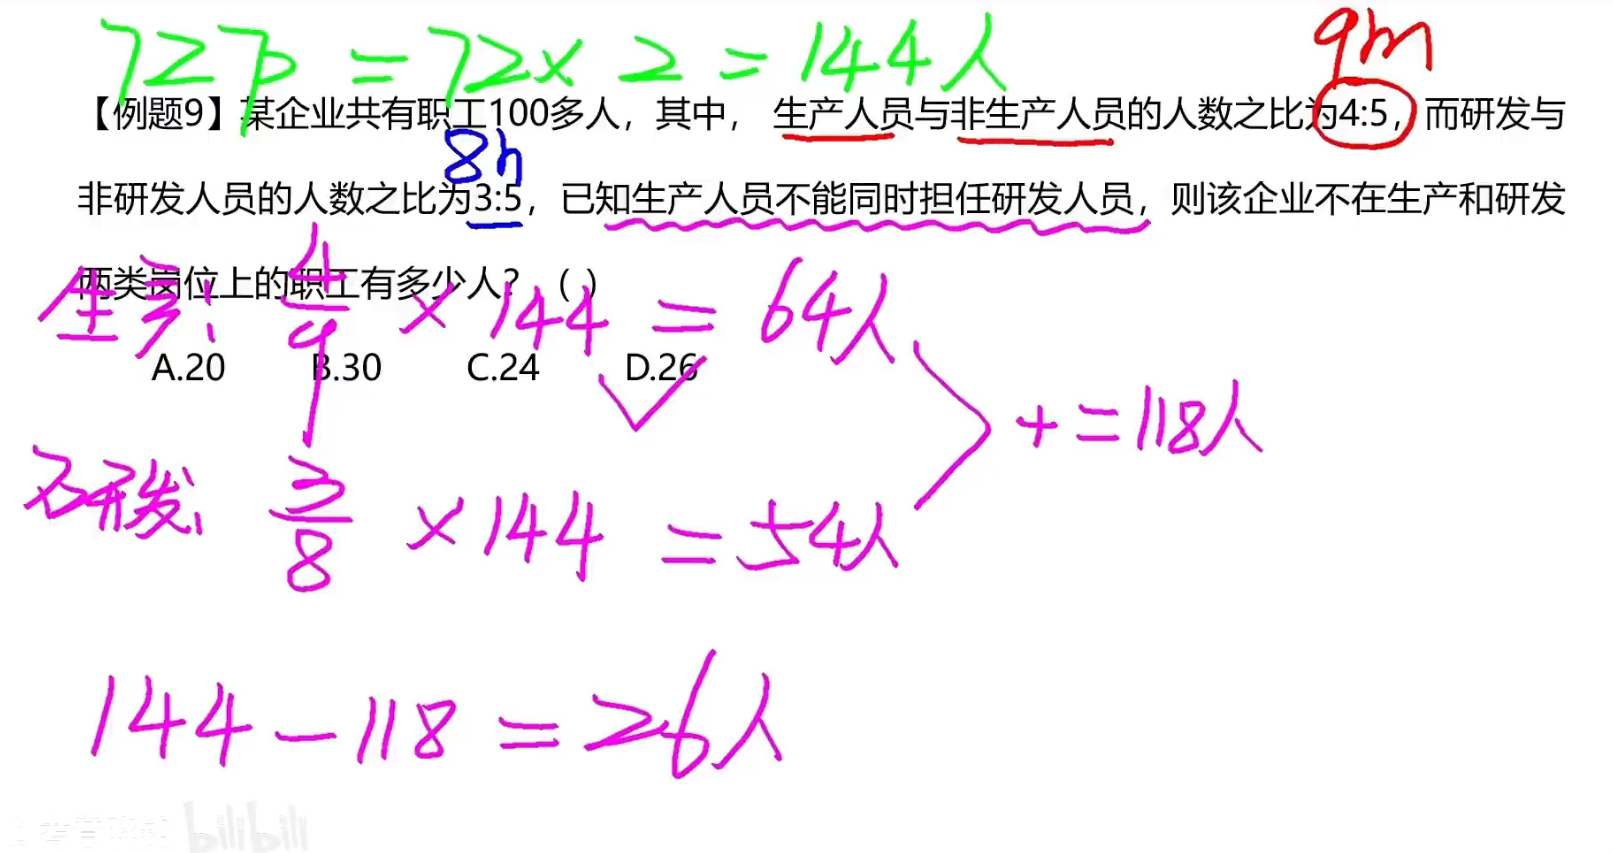 72p = 72× 2 = 144人
9m
【例题9】某企业共有职工100多人，其中， 生产人员与非生产人员的人数之比为4:5，而研发与
8n
非研发人员的人数之比为3:5，已知生产人员不能同时担任研发人员，则该企业不在生产和研发
两类岗位上的职工有多少人？（ ）
生产: 4/9 × 144 = 64人
A.20 B.30 C.24 D.26
+ = 118人
研发: 3/8 × 144 = 54人
144 - 118 = 26人
bilibili